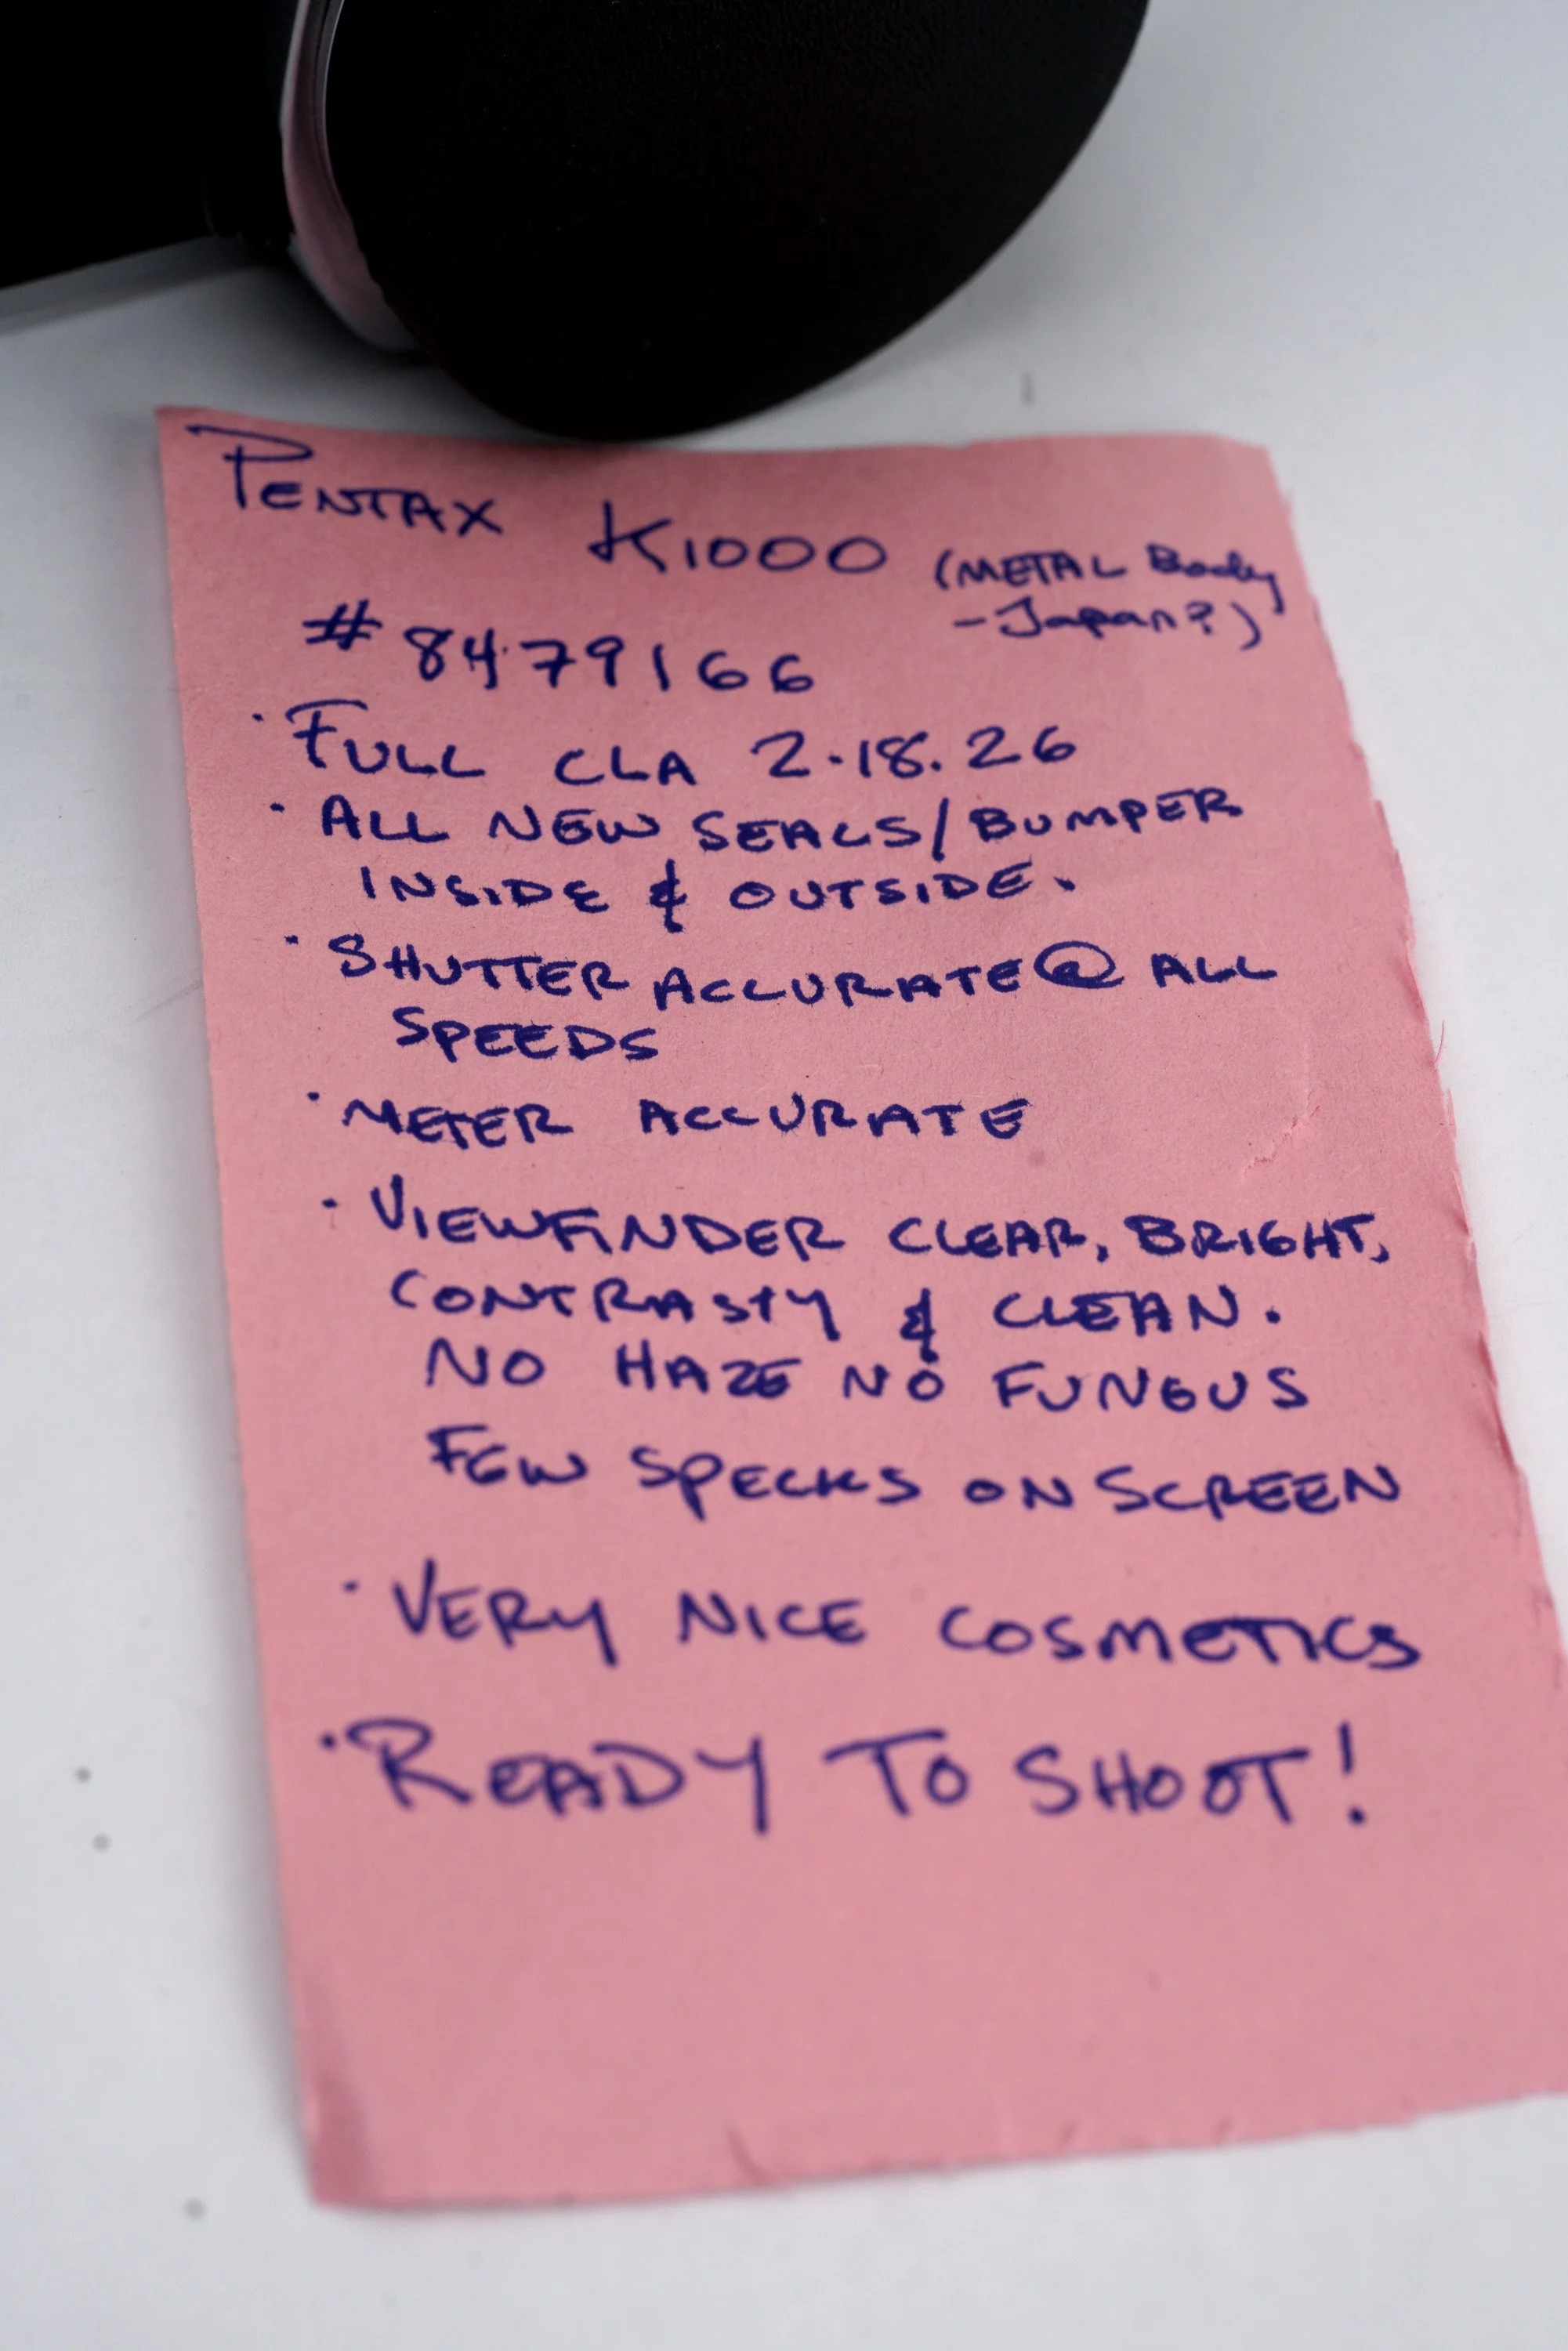 PENTAX K1000 (METAL Body
- Japan?)
# 8479166
· FULL CLA 2.18.26
· ALL NEW SEALS/BUMPER
INSIDE & OUTSIDE.
· SHUTTER ACCURATE @ ALL
SPEEDS
· METER ACCURATE
· VIEWFINDER CLEAR, BRIGHT,
CONTRASTY & CLEAN.
NO HAZE NO FUNGUS
FEW SPECKS ON SCREEN
· VERY NICE COSMETICS
· READY TO SHOOT!